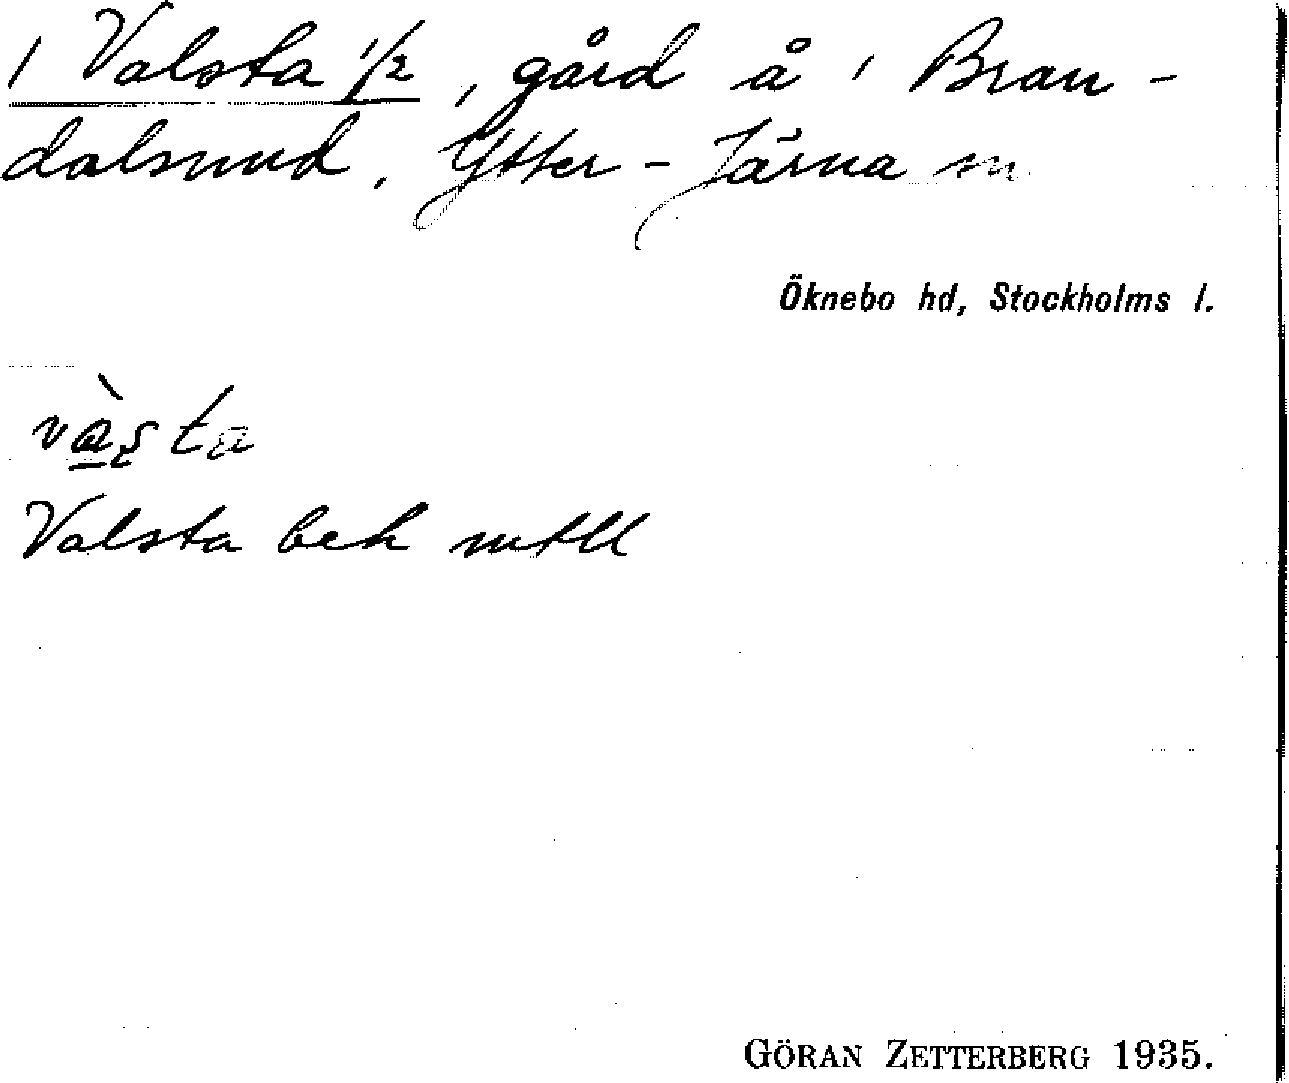 1 Valsta 1/2, gård å 1 Bran-
dalsund, Ytter-Järna sn
Öknebo hd, Stockholms l.
Valsta bek mtll
GÖRAN ZETTERBERG 1935.